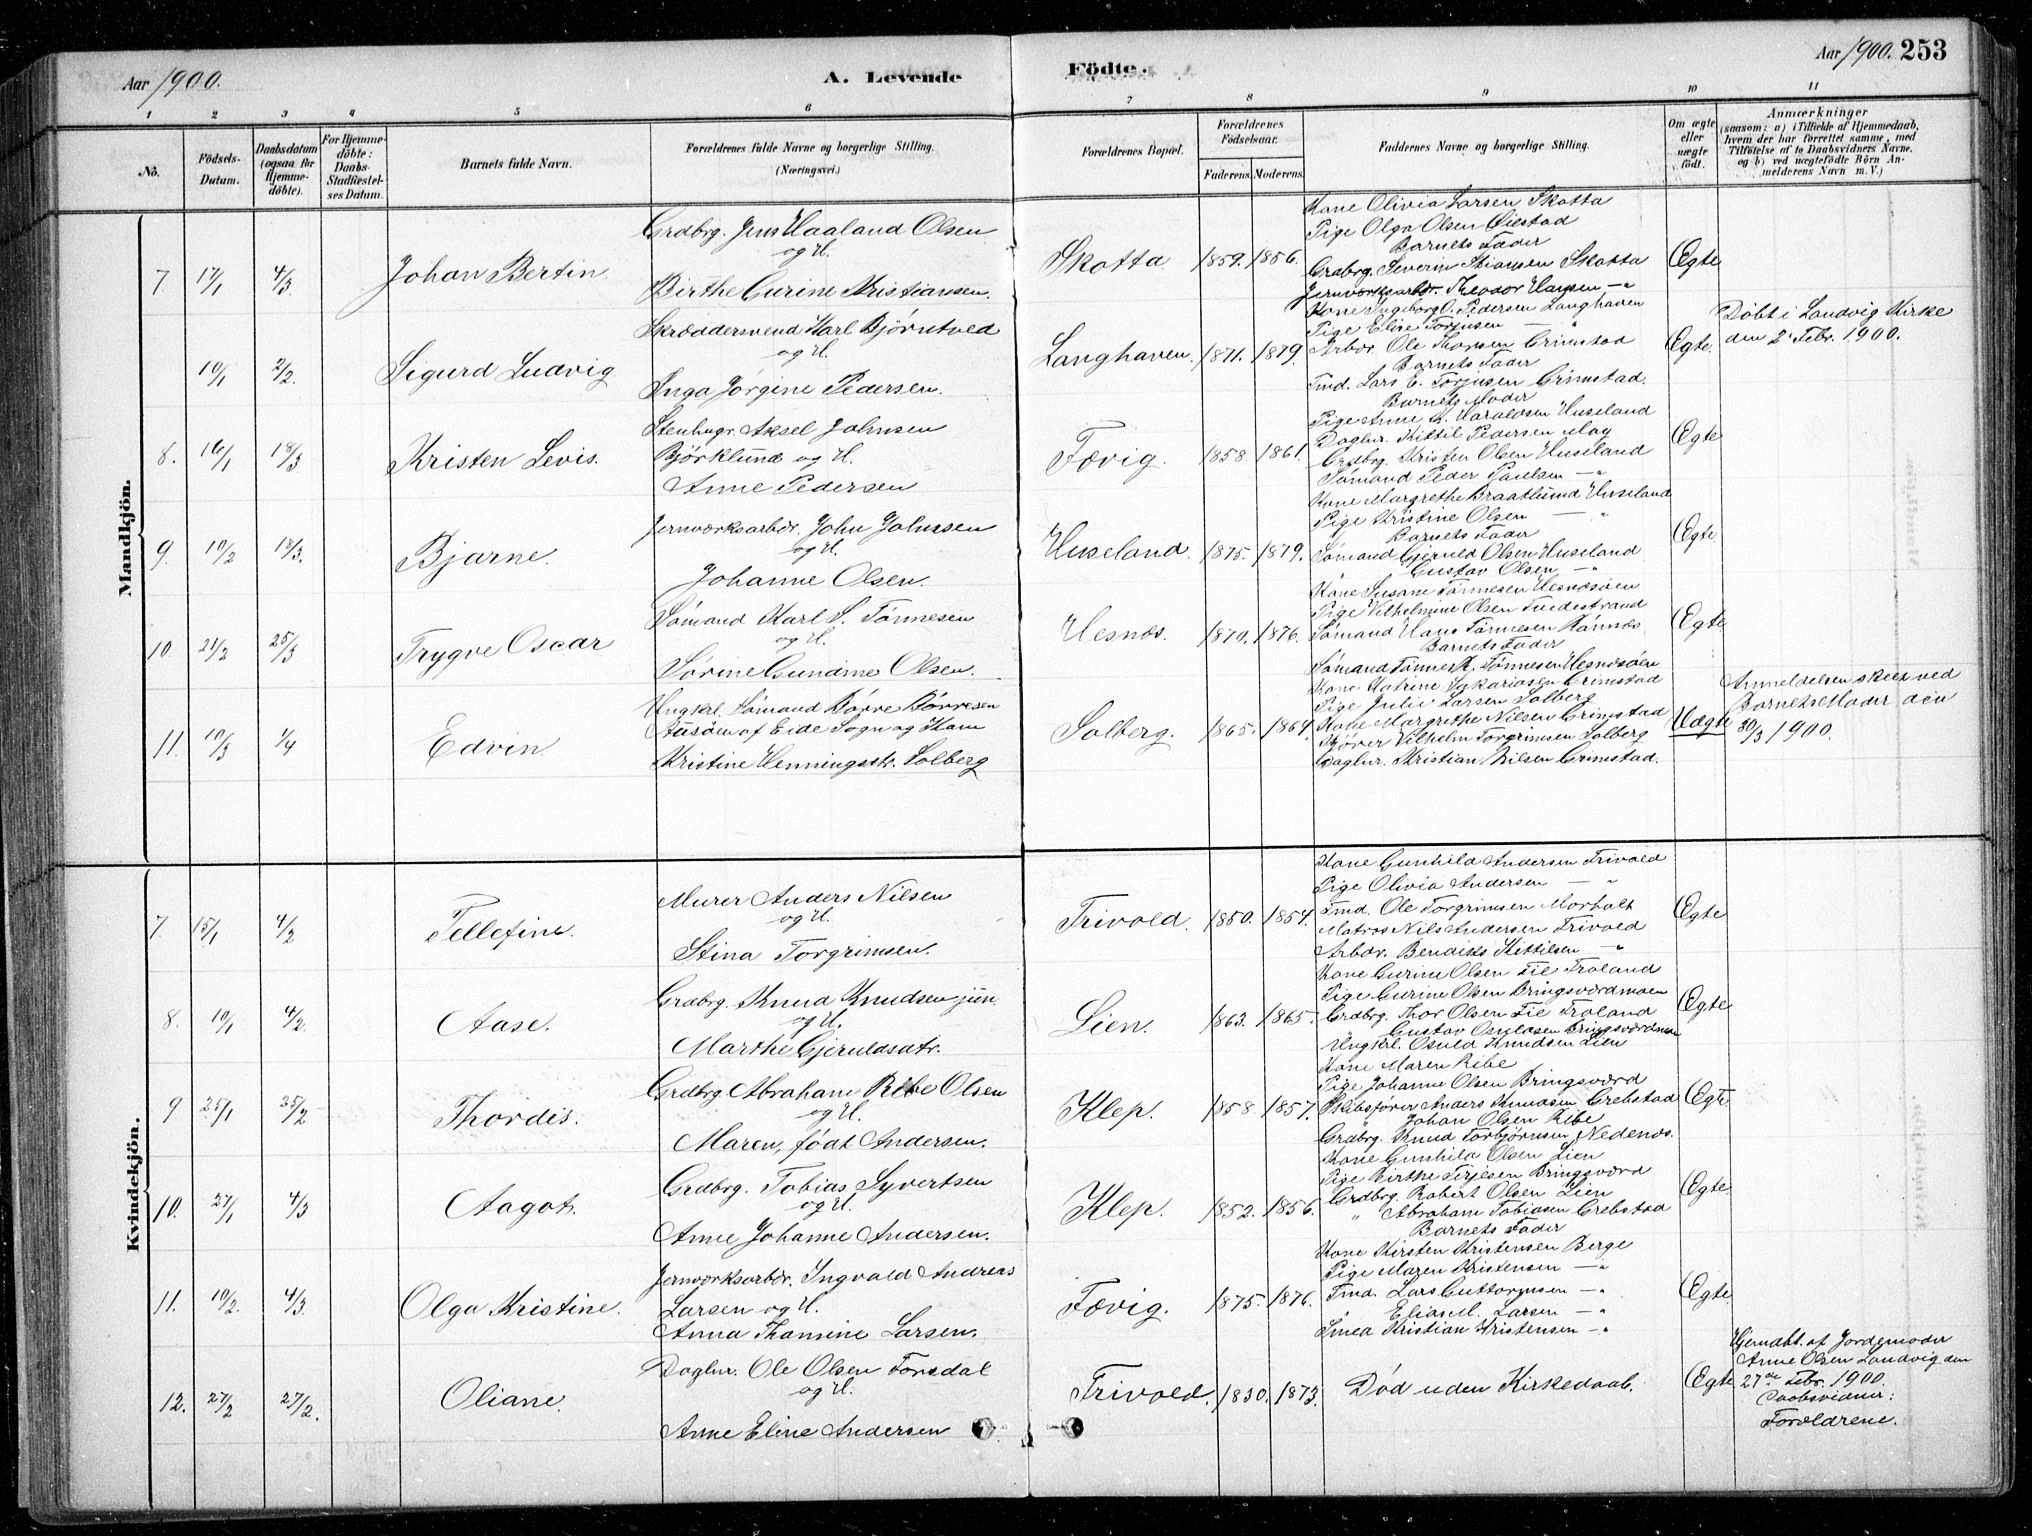 Aar 1900.
A. Levende
Födte.
Aar 1900. 253
1 2 3 4 5 6 7 8 9 10 11
No.
Födsels-Datum.
Daabsdatum (ogsaa for Hjemmedöbte).
For Hjemmedöbte: Daabs-Stadfæstelses Datum.
Barnets fulde Navn.
Forældrenes fulde Navne og borgerlige Stilling. (Næringsvei.)
Forældrenes Bopæl.
Forældrenes Födselsaar.
Faderens. Moderens.
Faddernes Navne og borgerlige Stilling.
Om ægte eller uægte födt.
Anmærkninger
(saasom: a) i Tilfælde af Hjemmedaab, hvem der har forrettet samme, med Tilföielse af to Daabsvidners Navne, og b) ved uægtefödte Börn Anmelderens Navn m. V.)
Mandkjön.
7 17/1 4/3 Johan Bertin.
Grdbrg. Jens Haaland Olsen
og H.
Birthe Gurine Kristiansen.
Skotta 1859. 1856.
Kone Olivia Larsen Skotta
Pige Olga Olsen Øiestad
Barnets Fader
Grdbrg. Severin Stiansen Skotta
Jernværksarbdr. Theodor Hansen —"
Ægte
10/1 2/2. Sigurd Ludvig
Skræddersvend Karl Björntved
og H.
Inga Jörgine Pedersen.
Langhaven. 1871. 1879.
Kone Ingeborg O. Pedersen Langhaven
Pige Elise Torjusen — "
Arbdr. Ole Thorsen Grimstad
Barnets Fader
Tmd. Lars E. Torjusen Grimstad.
Ægte.
Döbt i Landvig Kirke
den 2 Febr. 1900.
8. 16/1 18/3 Kristen Levis.
Stenhugr. Aksel Johnsen
Björklund og H.
Anne Pedersen
Fævig. 1858. 1861.
Barnets Moder
Pige Anne K. Haraldsen Huseland
Daglnr. Kittil Pedersen Moy
Grdbrg. Kristen Olsen Huseland
Sömand Peder Paulsen — "
Ægte
9. 10/2 18/3. Bjarne.
Jernværksarbdr. John Johnsen
og H.
Johanne Olsen.
Huseland. 1875. 1879.
Kone Margrethe Braatlund Huseland
Pige Kristine Olsen — "
Barnets Fader
Sömand Gjeruld Olsen Huseland
Gustav Olsen —"
Ægte
10. 21/2 25/3 Trygve Oscar
Sömand Karl S. Tönnesen
og H.
Sorine Gundine Olsen.
Hesnæs. 1870. 1876.
Kone Susane Tönnesen Hesnæsöen
Pige Vilhelmine Olsen Tvedestrand
Sömand Hans Tönnesen Rönnæs
Barnets Fader
Sömand Tönnes K. Tönnesen Hesnæsöen
Ægte
11. 10/3 1/4 Edvin
Ungkrl. Sömand Börre Börresen
Ausöen af Eide Sogn og Kone
Kristine Henningsdtr. Solberg
Solberg. 1865. 1864.
Kone Katrine Sakariasen Grimstad
Pige Julie Larsen Solberg
Kone Margrethe Nilsen Grimstad
Kjörer Vilhelm Torgrimsen Solberg
Daglnr. Kristian Nilsen Grimstad.
Uægte
Anmeldelsen skeet ved
Barnets Moder den
30/3 1900.
Kvindekjön.
7. 15/1 4/2 Tellefine.
Murer Anders Nilsen
og H.
Stina Torgrimsen.
Trivold. 1850. 1854.
Kone Gunhild Andersen Trivold
Pige Olivia Andersen — "
Tmd. Ole Torgrimsen Morholt
Matros Nils Andersen Trivold
Arbdr. Bendiks Kittilsen — "
Ægte
8. 10/1 4/2. Aase.
Grdbrg. Knud Knudsen jun.
og H.
Marthe Gjeruldsdtr.
Lien. 1863. 1865.
Kone Gurine Olsen Lie Froland
Pige Gurine Olsen Bringsværdmoen
Grdbrg. Thor Olsen Lie Froland
" Gustav Osuldsen Bringsværdmoen
Ungkrl. Osuld Knudsen Lien
Ægte
9 25/1 25/2 Thordis.
Grdbrg. Abraham Ribe Olsen
og H.
Maren, födt Andersen.
Klep. 1858. 1857.
Kone Maren Ribe
Pige Johanne Olsen Bringsværd
Skibsförer Anders Knudsen Grebstad
Johan Olsen Ribe
Grdbrg. Knud Torbjörnsen Nedenæs.
Ægte.
10. 27/1 4/3 Aagot.
Grdbrg. Tobias Syvertsen
og H.
Anne Johanne Andersen.
Klep. 1852. 1856.
Kone Gunhild Olsen Lien
Pige Birthe Terjesen Bringsværd
Grdbrg. Robert Olsen Lien
" Abraham Tobiasen Grebstad
Barnets Fader
Ægte
11. 10/2. 4/3. Olga Kristine.
Jernværksarbdr. Ingvald Andreas
Larsen og H.
Anna Thomine Larsen.
Fævig. 1875. 1876.
Kone Kirsten Kristensen Berge
Pige Maren Kristensen — "
Tmd. Lars Guttormsen — "
Elias M. Larsen — "
Smed Kristian Kristensen — "
Ægte
12. 27/2 27/2. Oliane.
Daglnr. Ole Olsen Forsdal
og H.
Anne Eline Andersen
Trivold. 1830. 1873.
Död uden Kirkedaab.
Ægte
Hjemdbt. af Jordemoder
Anne Olsen Landvig den
27de Febr. 1900.
Daabsvidner:
Forældrene.